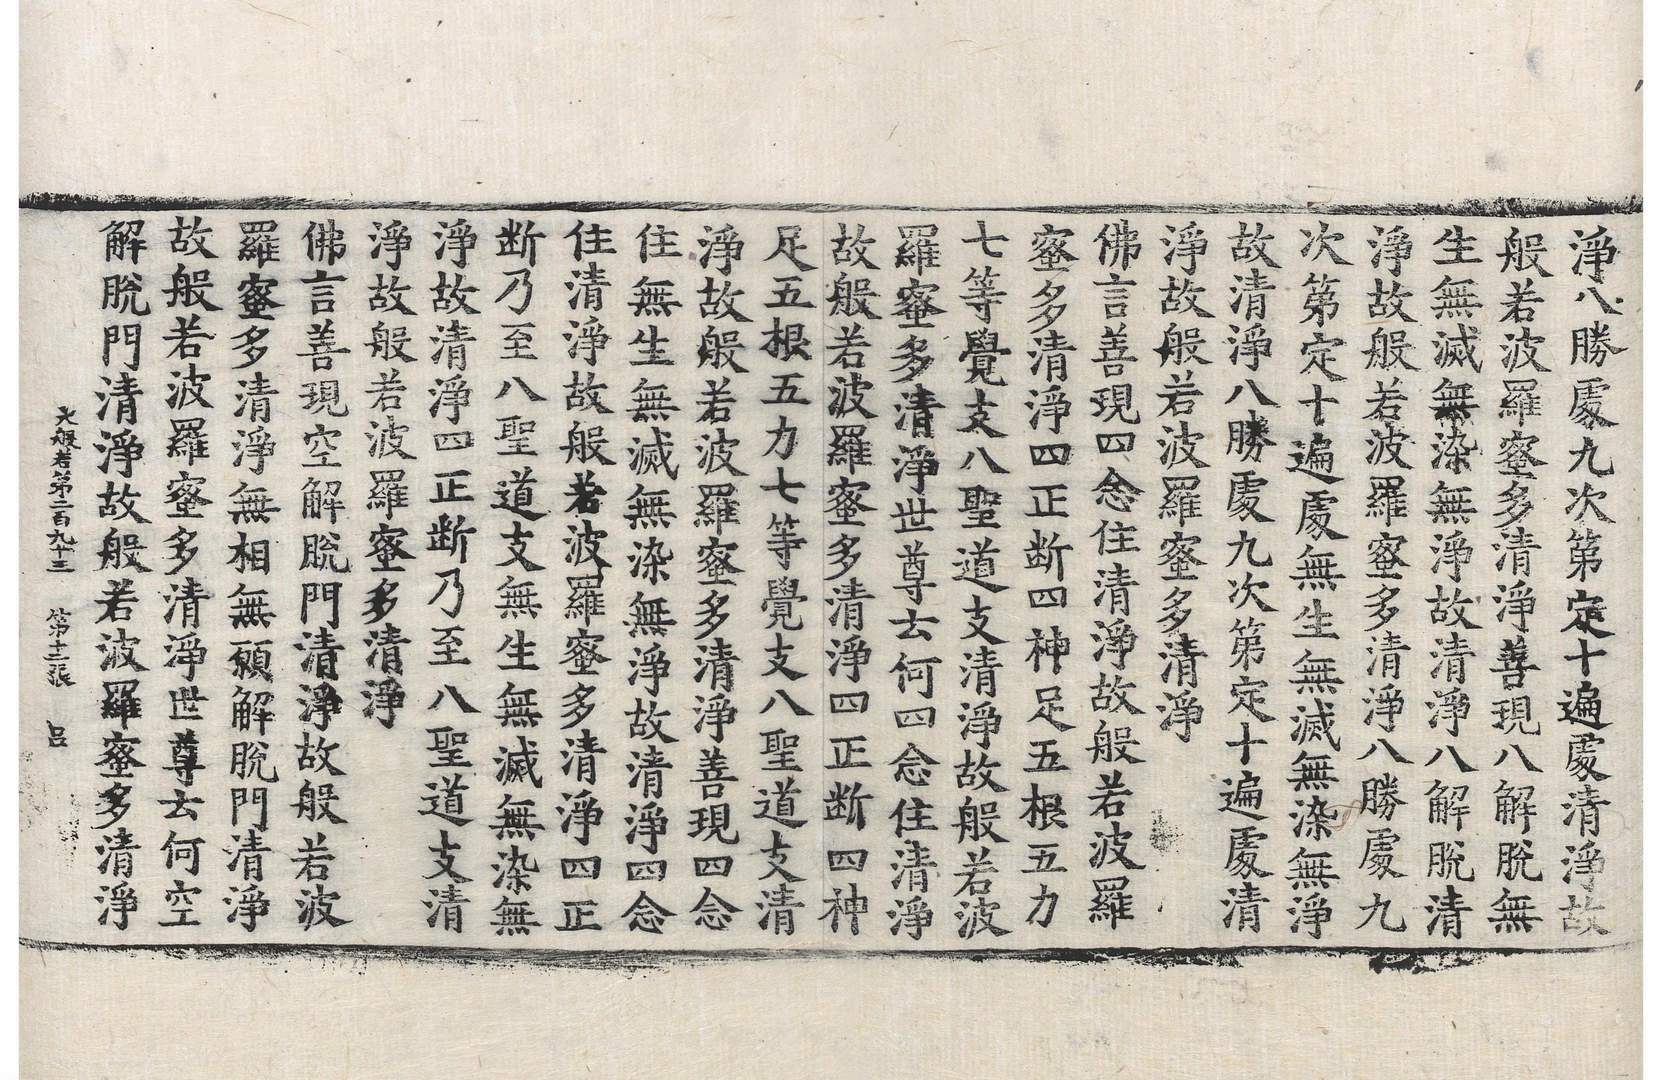 淨八勝處九次第定十遍處清淨故
般若波羅蜜多清淨善現八解脫無
生無滅無染無淨故清淨八解脫清
淨故般若波羅蜜多清淨八勝處九
次第定十遍處無生無滅無染無淨
故清淨八勝處九次第定十遍處清
淨故般若波羅蜜多清淨
佛言善現四念住清淨故般若波羅
蜜多清淨四正断四神足五根五力
七等覺支八聖道支清淨故般若波
羅蜜多清淨世尊云何四念住清淨
故般若波羅蜜多清淨四正断四神
足五根五力七等覺支八聖道支清
淨故般若波羅蜜多清淨善現四念
住無生無滅無染無淨故清淨四念
住清淨故般若波羅蜜多清淨四正
断乃至八聖道支無生無滅無染無
淨故清淨四正断乃至八聖道支清
淨故般若波羅蜜多清淨
佛言善現空解脫門清淨故般若波
羅蜜多清淨無相無願解脫門清淨
故般若波羅蜜多清淨世尊云何空
解脫門清淨故般若波羅蜜多清淨
大般若第二百九十三 第十二張 呂